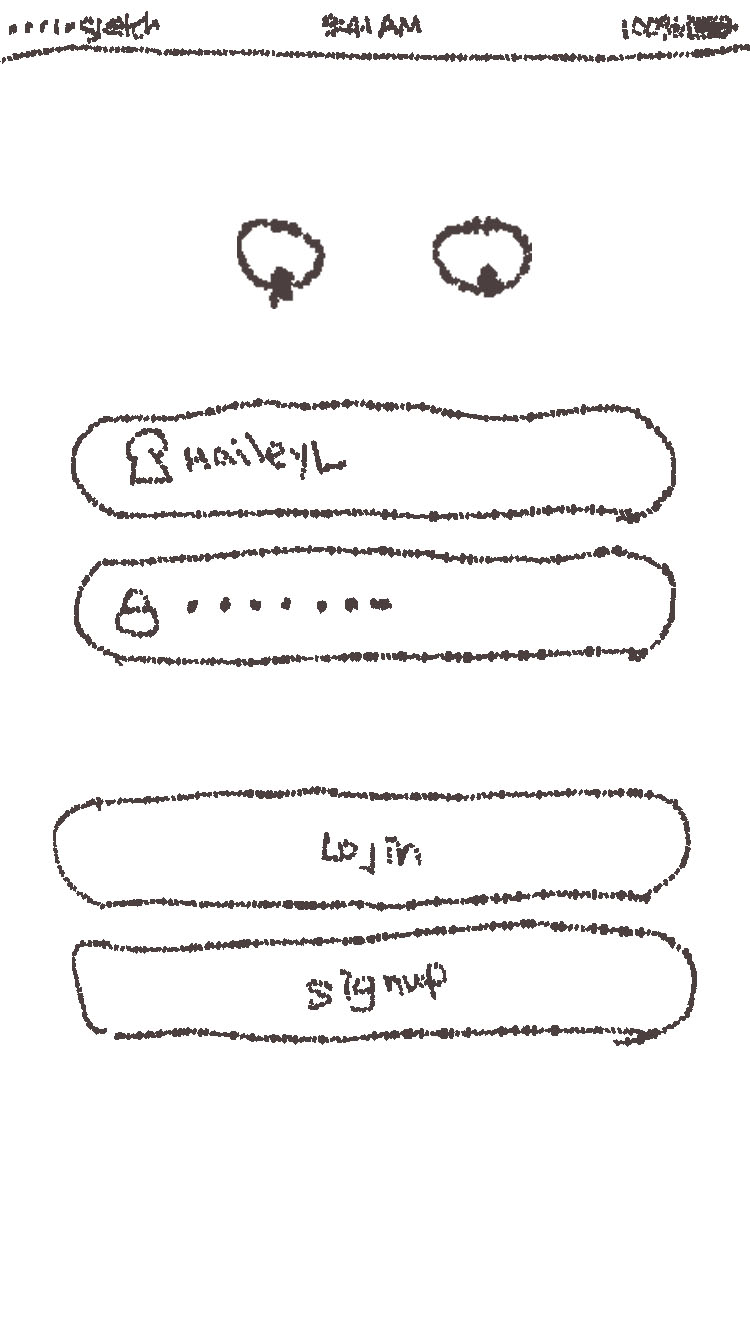 Sketch 9:41 AM 100%
HaileyL
Login
signup